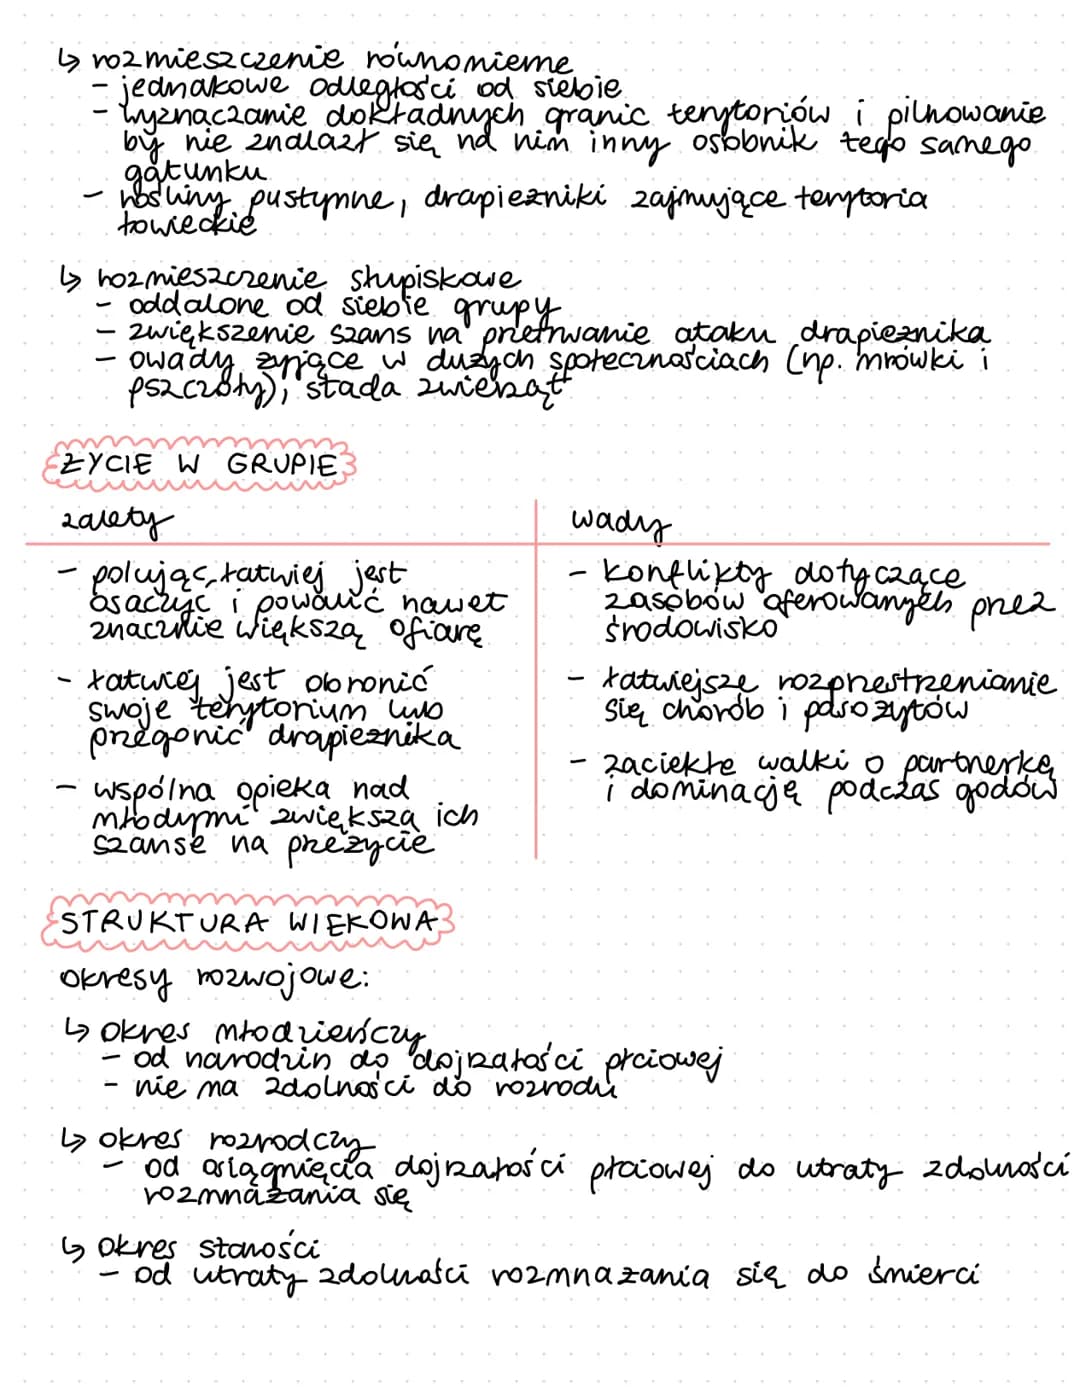 ↳ rozmieszczenie równomierne
- jednakowe odległości od siebie
- wyznaczanie dokładnych granic terytoriów i pilnowanie
by nie znalazł się na nim inny osobnik tego samego
gatunku
- rośliny pustynne, drapieżniki zajmujące terytoria
łowieckie
↳ rozmieszczenie skupiskowe
- oddalone od siebie grupy
- zwiększenie szans na przetrwanie ataku drapieżnika
- owady żyjące w dużych społecznościach (np. mrówki i
pszczoły), stada zwierząt
ŻYCIE W GRUPIE
zalety
- polując, łatwiej jest
osaczyć i powalić nawet
znacznie większą ofiarę
- łatwiej jest obronić
swoje terytorium lub
przegonić drapieżnika
- wspólna opieka nad
młodymi zwiększa ich
szanse na przeżycie
wady
- konflikty dotyczące
zasobów oferowanych przez
środowisko
- łatwiejsze rozprzestrzenianie
się chorób i pasożytów
- zaciekłe walki o partnerkę
i dominację podczas godów
STRUKTURA WIEKOWA
okresy rozwojowe:
↳ okres młodzieńczy
- od narodzin do dojrzałości płciowej
- nie ma zdolności do rozrodu
↳ okres rozrodczy
- od osiągnięcia dojrzałości płciowej do utraty zdolności
rozmnażania się
↳ okres starości
- od utraty zdolności rozmnażania się do śmierci